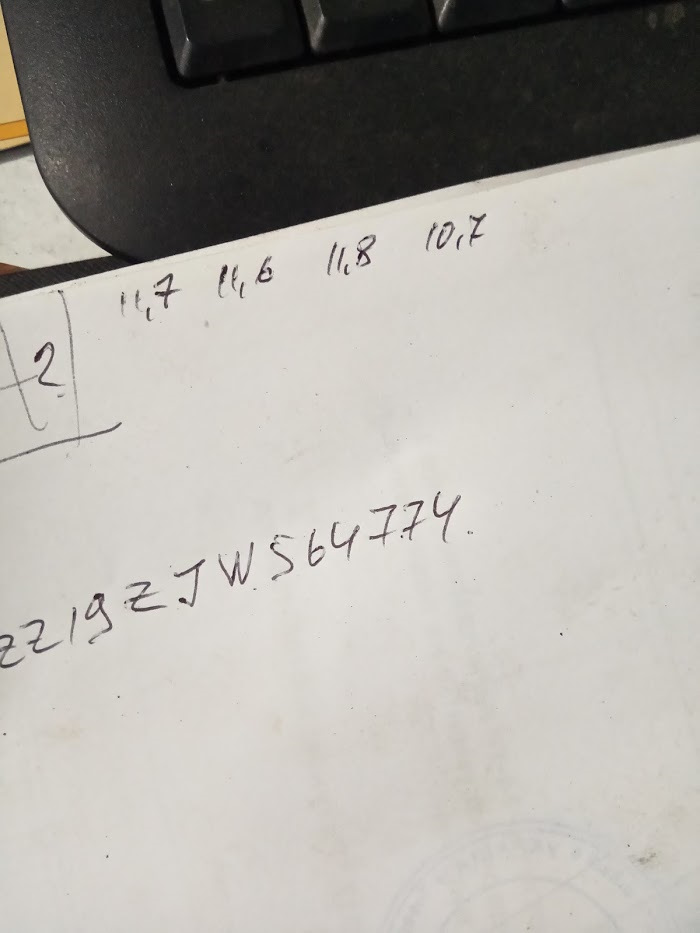 11,7 11,6 11,8 10,7
2
ZZ19ZJWS64774